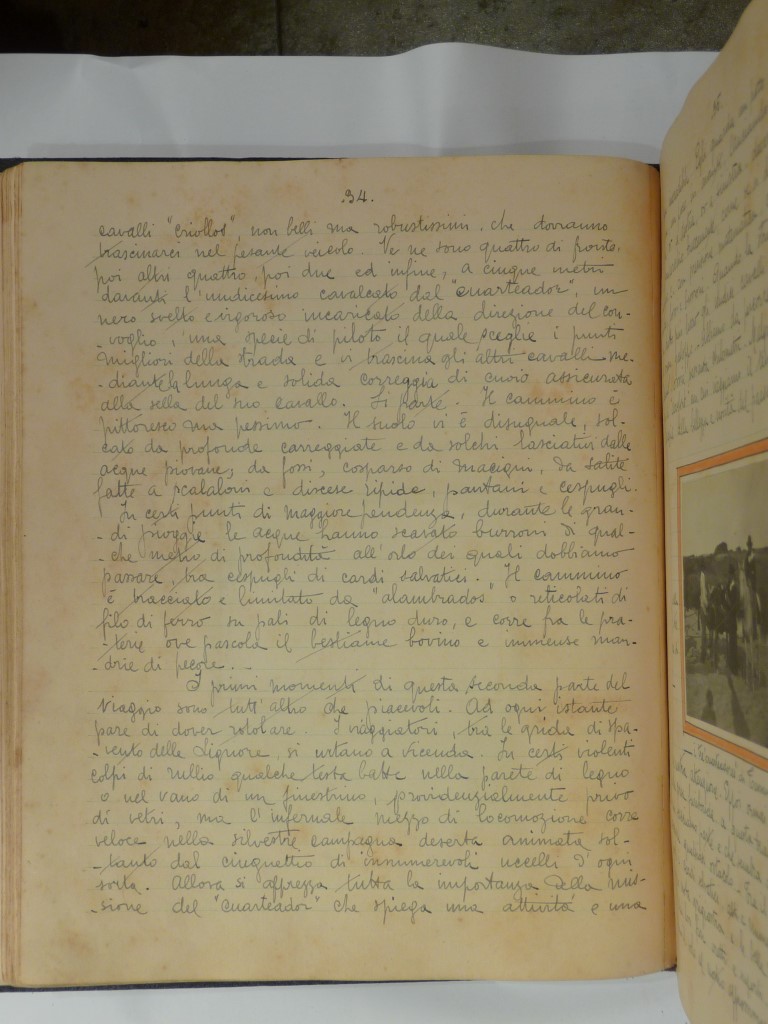 .34.
cavalli "criollos", non belli ma robustissimi che dovranno
trascinarci nel pesante veicolo. Ve ne sono quattro di fronte,
poi altri quattro, poi due ed infine, a cinque metri
davanti l'undicesimo cavalcato dal "cuarteador", un
nero svelto e vigoroso incaricato della direzione del con-
-voglio, una specie di piloto il quale sceglie i punti
migliori della strada e vi trascina gli altri cavalli me-
-diante la lunga e solida correggia di cuoio assicurata
alla sella del suo cavallo. Si parte. Il cammino è
pittoresco ma pessimo. Il suolo vi è disuguale, sol-
cato da profonde carreggiate e da solchi lasciativi dalle
acque piovane, da fossi, cosparso di macigni, da salite
fatte a scalaloni e discese ripide, pantani e cespugli.
In certi punti di maggiore pendenza, durante le gran-
-di pioggie le acque hanno scavato burroni di qual-
-che metro di profondità all'orlo dei quali dobbiamo
passare, tra cespugli di cardi salvatici. Il cammino
è tracciato e limitato da "alambrados" o reticolati di
filo di ferro su pali di legno duro, e corre fra le pra-
-terie ove pascola il bestiame bovino e immense man-
-drie di pecore. -
I primi momenti di questa seconda parte del
viaggio sono tutt'altro che piacevoli. Ad ogni istante
pare di dover rotolare. I viaggiatori, tra le grida di spa-
-vento delle Signore, si urtano a vicenda. In certi violenti
colpi di rullio qualche testa batte nella parete di legno
o nel vano di un finestrino, providenzialmente privo
di vetri, ma l'infernale mezzo di locomozione corre
veloce nella silvestre campagna deserta animata sol-
-tanto dal cinguettio di innumerevoli uccelli d'ogni
sorta. Allora si apprezza tutta la importanza della mis-
-sione del "cuarteador" che spiega una attività e una